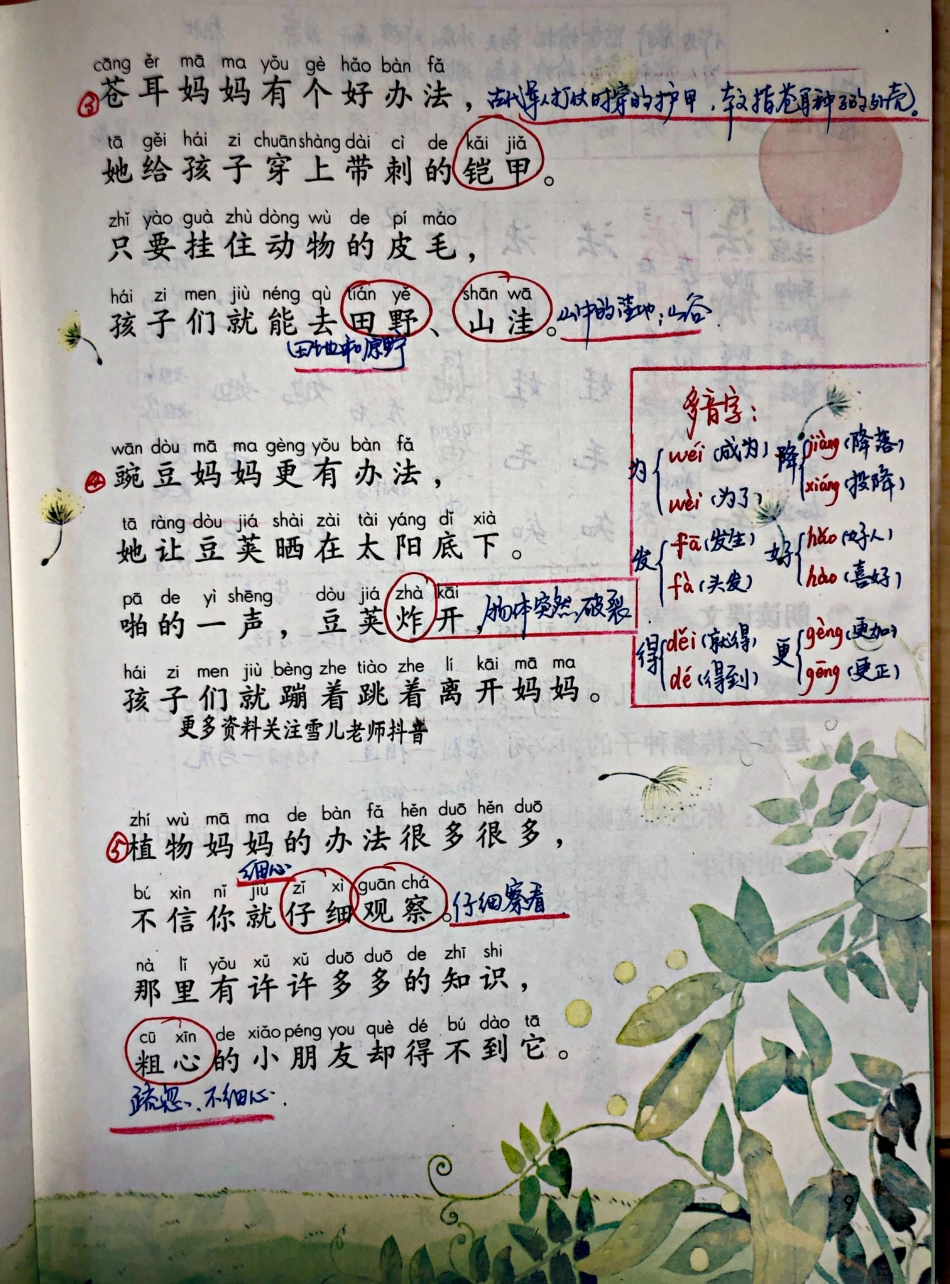 cāng ěr mā ma yǒu gè hǎo bàn fǎ
③苍耳妈妈有个好办法，古代军人打仗时穿的护甲，本文指苍耳种子的外壳。
tā gěi hái zi chuān shàng dài cì de kǎi jiǎ
她给孩子穿上带刺的铠甲。
zhǐ yào guà zhù dòng wù de pí máo
只要挂住动物的皮毛，
hái zi men jiù néng qù tián yě shān wā
孩子们就能去田野、山洼。山中的洼地；山谷.
田地和原野
wān dòu mā ma gèng yǒu bàn fǎ
④豌豆妈妈更有办法，
tā ràng dòu jiá shài zài tài yáng dǐ xià
她让豆荚晒在太阳底下。
pā de yì shēng dòu jiá zhà kāi
啪的一声，豆荚炸开，物体突然破裂
hái zi men jiù bèng zhe tiào zhe lí kāi mā ma
孩子们就蹦着跳着离开妈妈。
更多资料关注雪儿老师抖音
多音字：
为 wéi (成为) wèi (为了)
降 jiàng (降落) xiáng (投降)
发 fā (发生) fà (头发)
好 hǎo (好人) hào (喜好)
得 děi (就得) dé (得到)
更 gèng (更加) gēng (更正)
zhí wù mā ma de bàn fǎ hěn duō hěn duō
⑤植物妈妈的办法很多很多，
细心
bú xìn nǐ jiù zǐ xì guān chá
不信你就仔细观察。仔细察看.
nà lǐ yǒu xǔ xǔ duō duō de zhī shi
那里有许许多多的知识，
cū xīn de xiǎo péng you què dé bú dào tā
粗心的小朋友却得不到它。
疏忽、不细心.
9